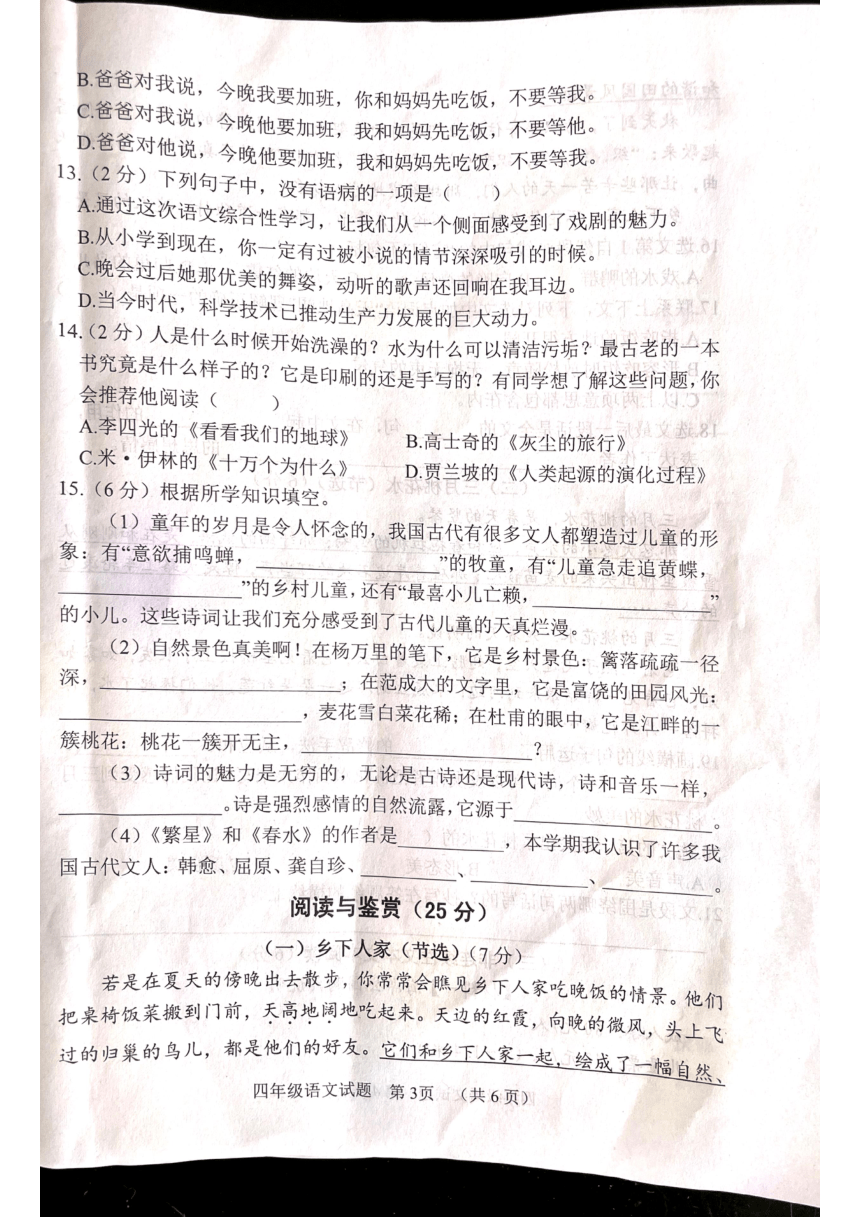 B.爸爸对我说，今晚我要加班，你和妈妈先吃饭，不要等我。
C.爸爸对我说，今晚他要加班，我和妈妈先吃饭，不要等他。
D.爸爸对他说，今晚他要加班，我和妈妈先吃饭，不要等我。
13.（2分）下列句子中，没有语病的一项是（　　）
A.通过这次语文综合性学习，让我们从一个侧面感受到了戏剧的魅力。
B.从小学到现在，你一定有过被小说的情节深深吸引的时候。
C.晚会过后她那优美的舞姿，动听的歌声还回响在我耳边。
D.当今时代，科学技术已推动生产力发展的巨大动力。
14.（2分）人是什么时候开始洗澡的？水为什么可以清洁污垢？最古老的一本
书究竟是什么样子的？它是印刷的还是手写的？有同学想了解这些问题，你
会推荐他阅读（　　）
A.李四光的《看看我们的地球》　B.高士奇的《灰尘的旅行》
C.米·伊林的《十万个为什么》　D.贾兰坡的《人类起源的演化过程》
15.（6分）根据所学知识填空。
（1）童年的岁月是令人怀念的，我国古代有很多文人都塑造过儿童的形
象：有“意欲捕鸣蝉，________”的牧童，有“儿童急走追黄蝶，
________”的乡村儿童，还有“最喜小儿亡赖，________”
的小儿。这些诗词让我们充分感受到了古代儿童的天真烂漫。
（2）自然景色真美啊！在杨万里的笔下，它是乡村景色：篱落疏疏一径
深，________；在范成大的文字里，它是富饶的田园风光：
________，麦花雪白菜花稀；在杜甫的眼中，它是江畔的一
簇桃花：桃花一簇开无主，________？
（3）诗词的魅力是无穷的，无论是古诗还是现代诗，诗和音乐一样，
________。诗是强烈感情的自然流露，它源于________。
（4）《繁星》和《春水》的作者是________，本学期我认识了许多我
国古代文人：韩愈、屈原、龚自珍、________、________、________。
阅读与鉴赏（25分）
（一）乡下人家（节选）（7分）
若是在夏天的傍晚出去散步，你常常会瞧见乡下人家吃晚饭的情景。他们
把桌椅饭菜搬到门前，天高地阔地吃起来。天边的红霞，向晚的微风，头上飞
过的归巢的鸟儿，都是他们的好友。它们和乡下人家一起，绘成了一幅自然、
四年级语文试题　第3页　（共6页）